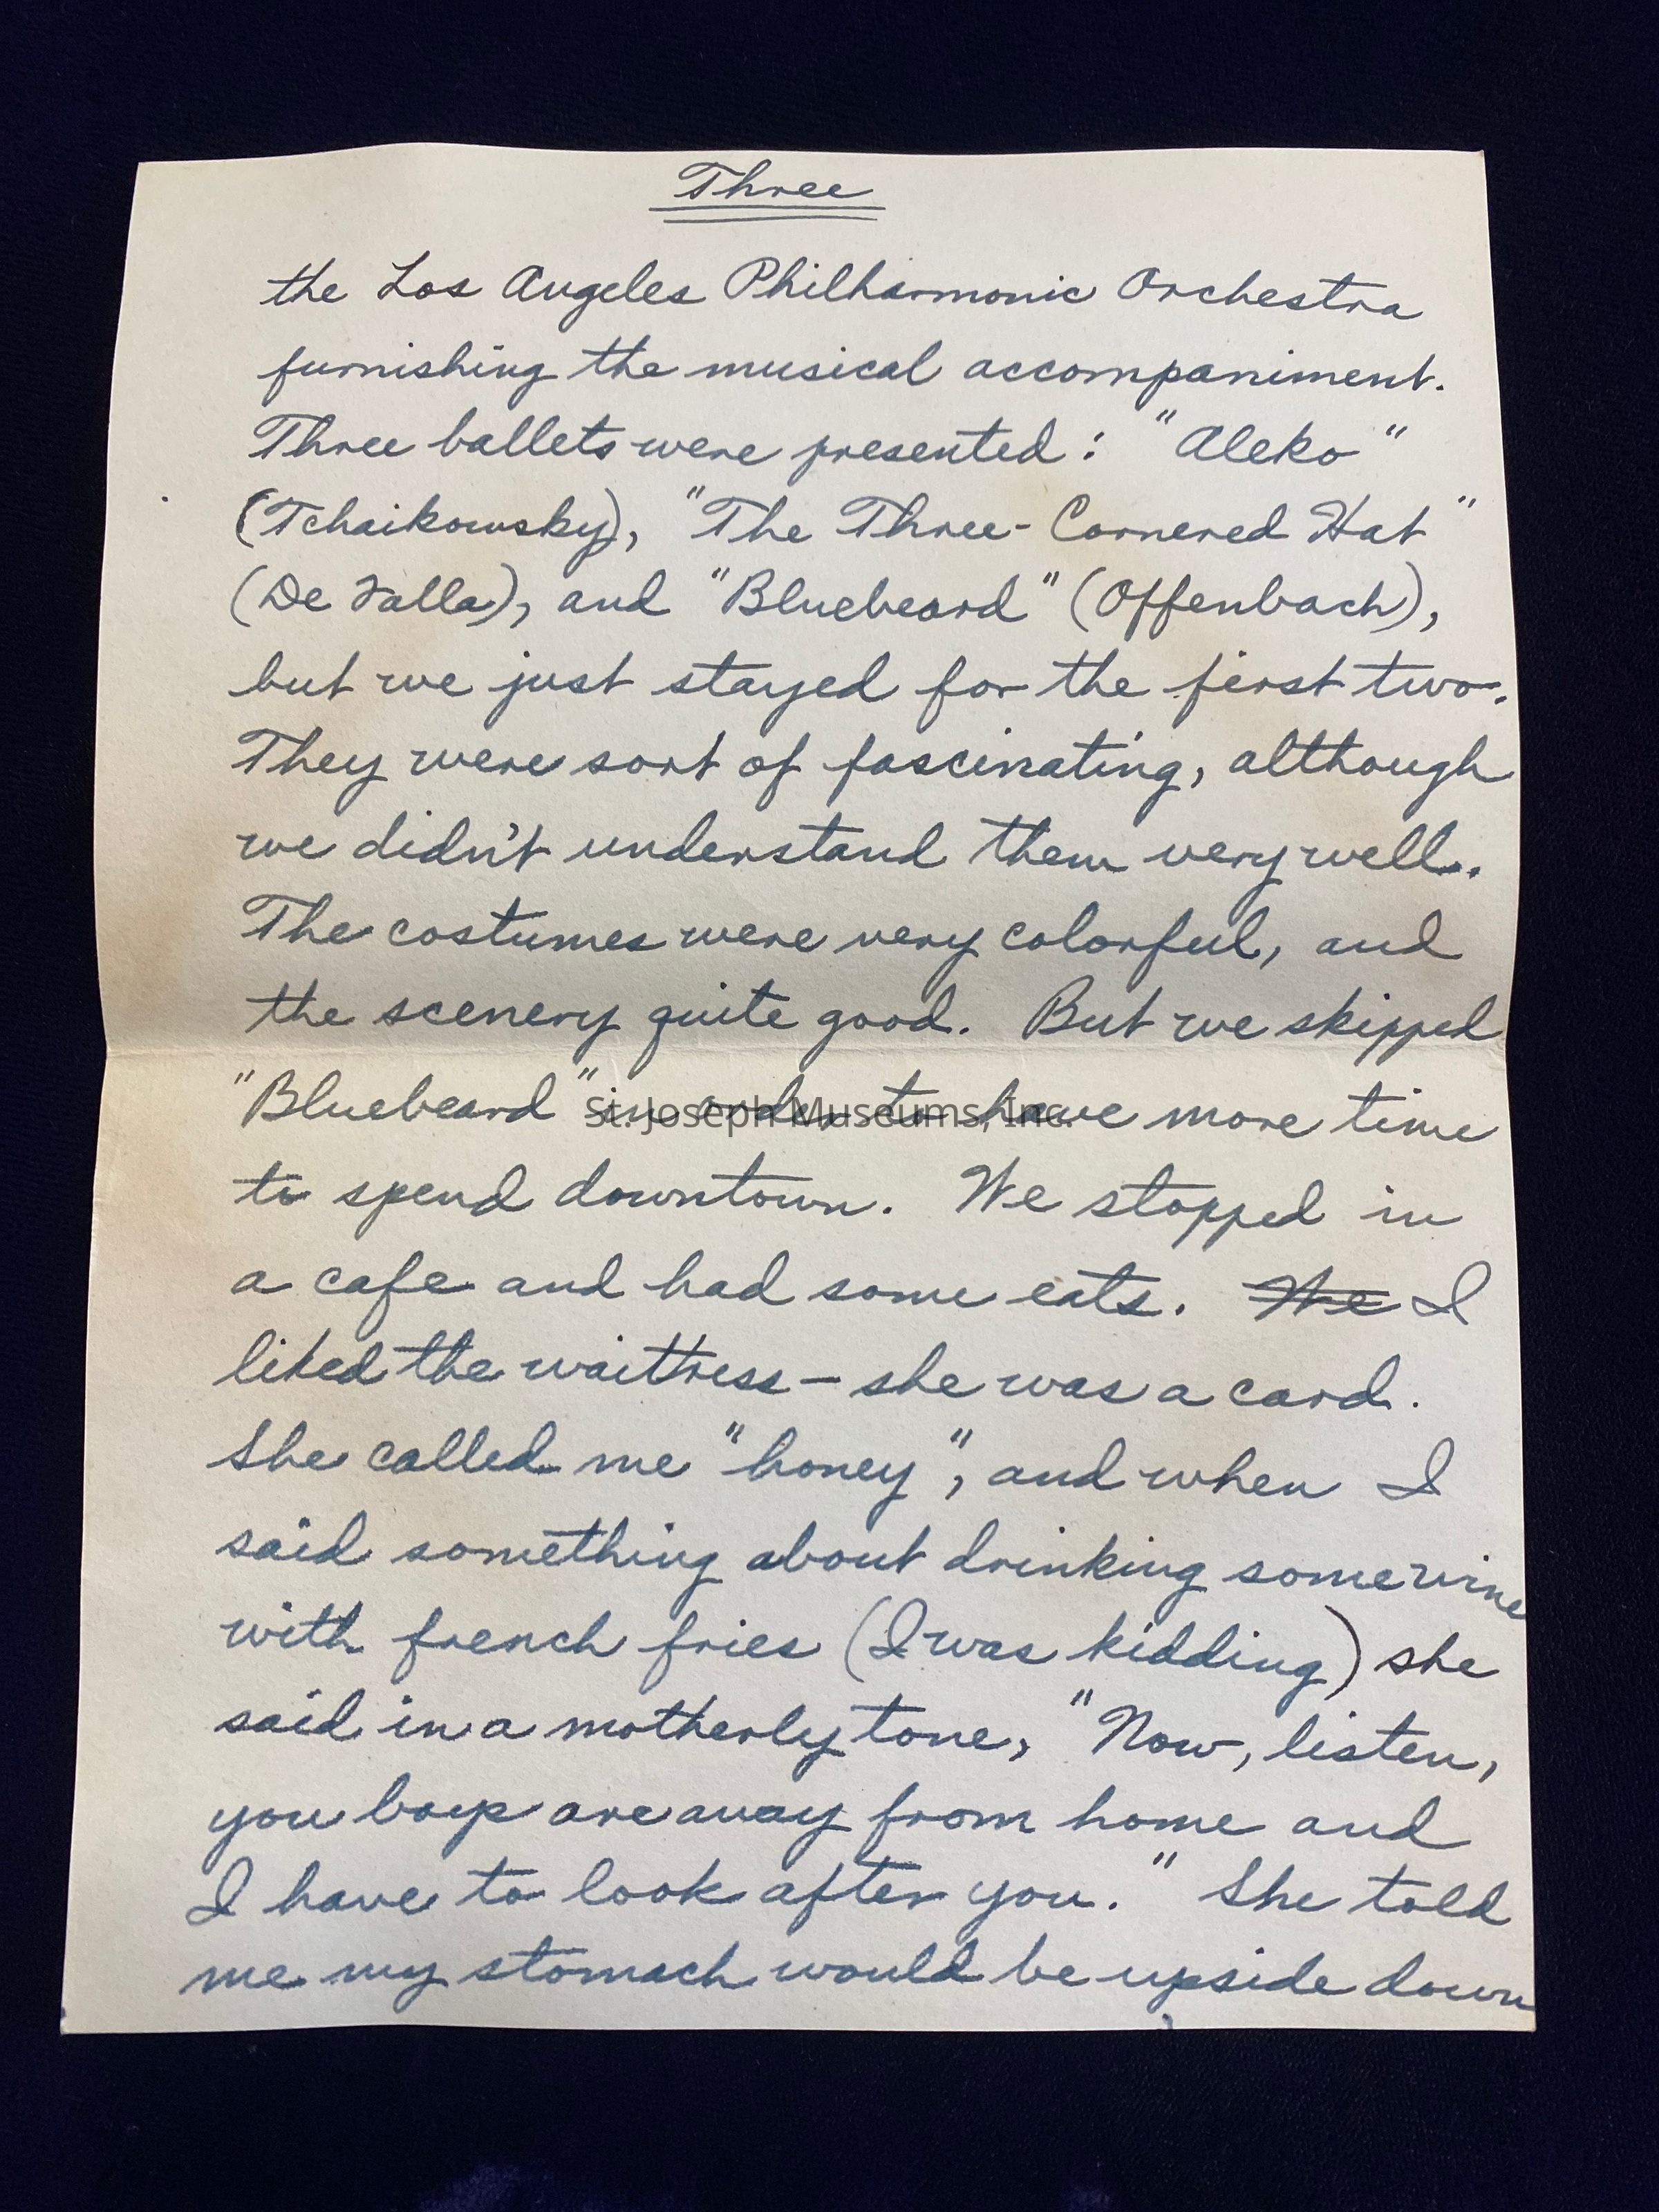 Three
the Los Angeles Philharmonic Orchestra
furnishing the musical accompaniment.
Three ballets were presented: "Aleko"
(Tchaikowsky), "The Three-Cornered Hat"
(De Falla), and "Bluebeard" (Offenbach),
but we just stayed for the first two.
They were sort of fascinating, although
we didn't understand them very well.
The costumes were very colorful, and
the scenery quite good. But we skipped
"Bluebeard" in order to have more time
St. Joseph Museums, Inc.
to spend downtown. We stopped in
a cafe and had some eats. We I
liked the waittress – she was a card.
She called me "honey", and when I
said something about drinking some wine
with french fries (I was kidding) she
said in a motherly tone, "Now, listen,
you boys are away from home and
I have to look after you." She told
me my stomach would be upside down